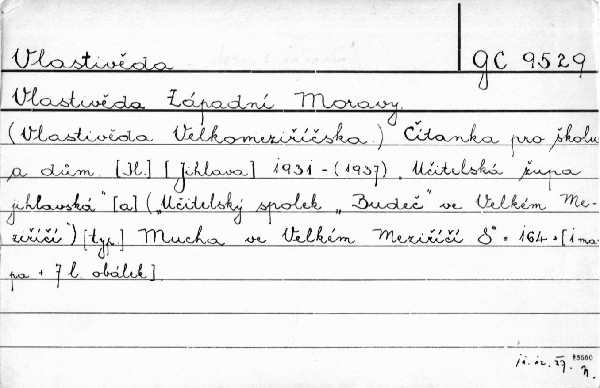 Vlastivěda gC 9529
Vlastivěda Západní Moravy.
(Vlastivěda Velkomeziříčska.) Čítanka pro školu
a dům. [Il.] [Jihlava] 1931-(1937). „Učitelská župa
jihlavská" [a] („Učitelský spolek „Budeč" ve Velkém Me-
zeříčí") [typ.] Mucha ve Velkém Meziříčí 8° 164 + [1 ma-
pa + 7 l. obálek].